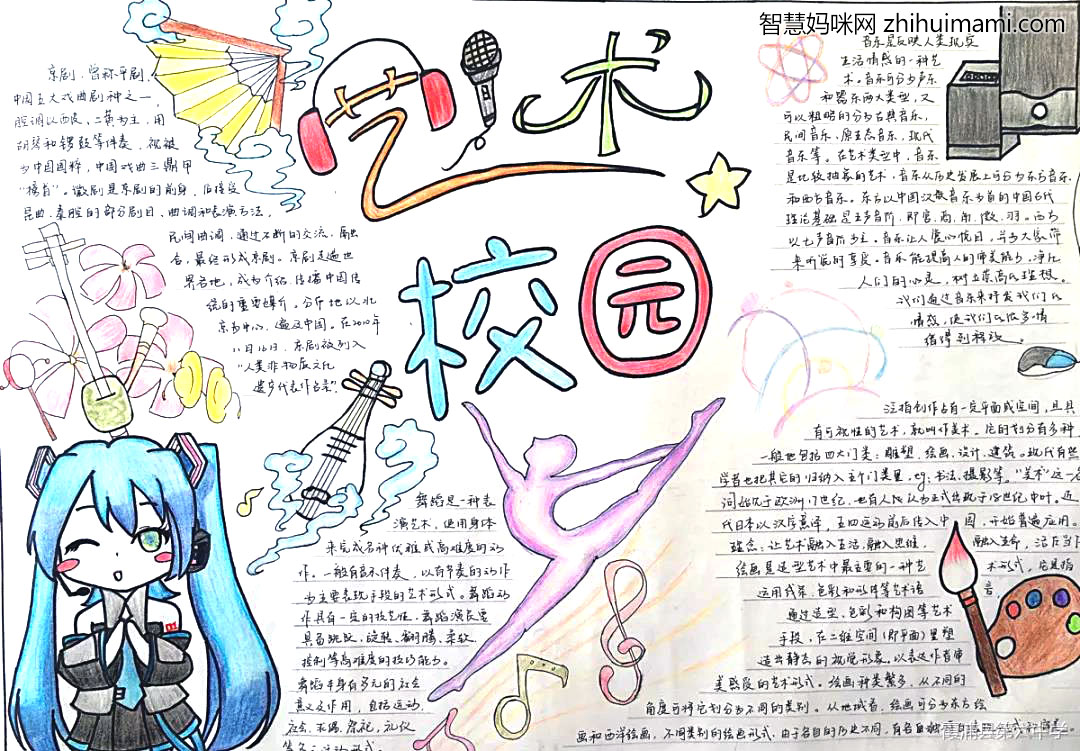 智慧妈咪网 zhihuimami.com
艺术
校园
京剧，曾称平剧，
中国五大戏曲剧种之一，
腔调以西皮、二黄为主，用
胡琴和锣鼓等伴奏，被视
为中国国粹，中国戏曲三鼎甲
“榜首”。徽剧是京剧的前身，后接受
昆曲、秦腔的部分剧目、曲调和表演方法，
民间曲调，通过不断的交流，融
合，最终形成京剧。京剧走遍世
界各地，成为介绍、传播中国传
统的重要媒介。分布地以北
京为中心，遍及中国。在2010年
11月16日，京剧被列入
“人类非物质文化
遗产代表作名录”
音乐是反映人类现实
生活情感的一种艺
术。音乐可分为声乐
和器乐两大类型，又
可以粗略的分为古典音乐，
民间音乐，原生态音乐，现代
音乐等。在艺术类型中，音乐
是比较抽象的艺术，音乐从历史发展上可分为东方音乐，
和西方音乐。东方以中国汉族音乐为首的中国古代
理论基础是五声音阶，即宫、商、角、徵、羽。西方
以七声音阶为主。音乐让人赏心悦目，并为大家带
来听觉的享受。音乐能提高人的审美能力，净化
人们的心灵，树立崇高的理想。
我们通过音乐来抒发我们的
情感，使我们的很多情
绪得到释放。
舞蹈是一种表
演艺术，使用身体
来完成各种优雅或高难度的动
作。一般有音乐伴奏，以有节奏的动作
为主要表现手段的艺术形式。舞蹈动
作具有一定的技艺性，舞蹈演员需
具备跳跃，旋转，翻腾，柔软，
控制等高难度的技巧能力。
舞蹈本身有多元的社会
意义及作用，包括运动，
社会，求偶，祭祀，礼仪
等
泛指创作占有一定平面或空间，且具
有可视性的艺术，就叫作美术。它的划分有多种，
一般地包括四大门类：雕塑，绘画，设计，建筑，现代有些
学者也把其它的归纳入五个门类里，eg：书法，摄影等。“美术”这一名
词始见于欧洲17世纪，也有人认为正式出现于18世纪中叶。近
代日本以汉字意译，五四运动前后传入中国，开始普遍应用。
理念：让艺术融入生活，融入思维，融入生命，活在当下
绘画是造型艺术中最主要的一种艺术形式，它是指
运用线条，色彩和形体等艺术语言
通过造型，色彩和构图等艺术
手段，在二维空间（即平面）里塑
造出静态的视觉形象，以表达作者审
美感受的艺术形式。绘画种类繁多，从不同的
角度可将它划分为不同的类别。从地域看，绘画可分为东方绘
画和西洋绘画，不同类别的绘画形式，由于各自的历史不同，有各自
霞浦县第六中学